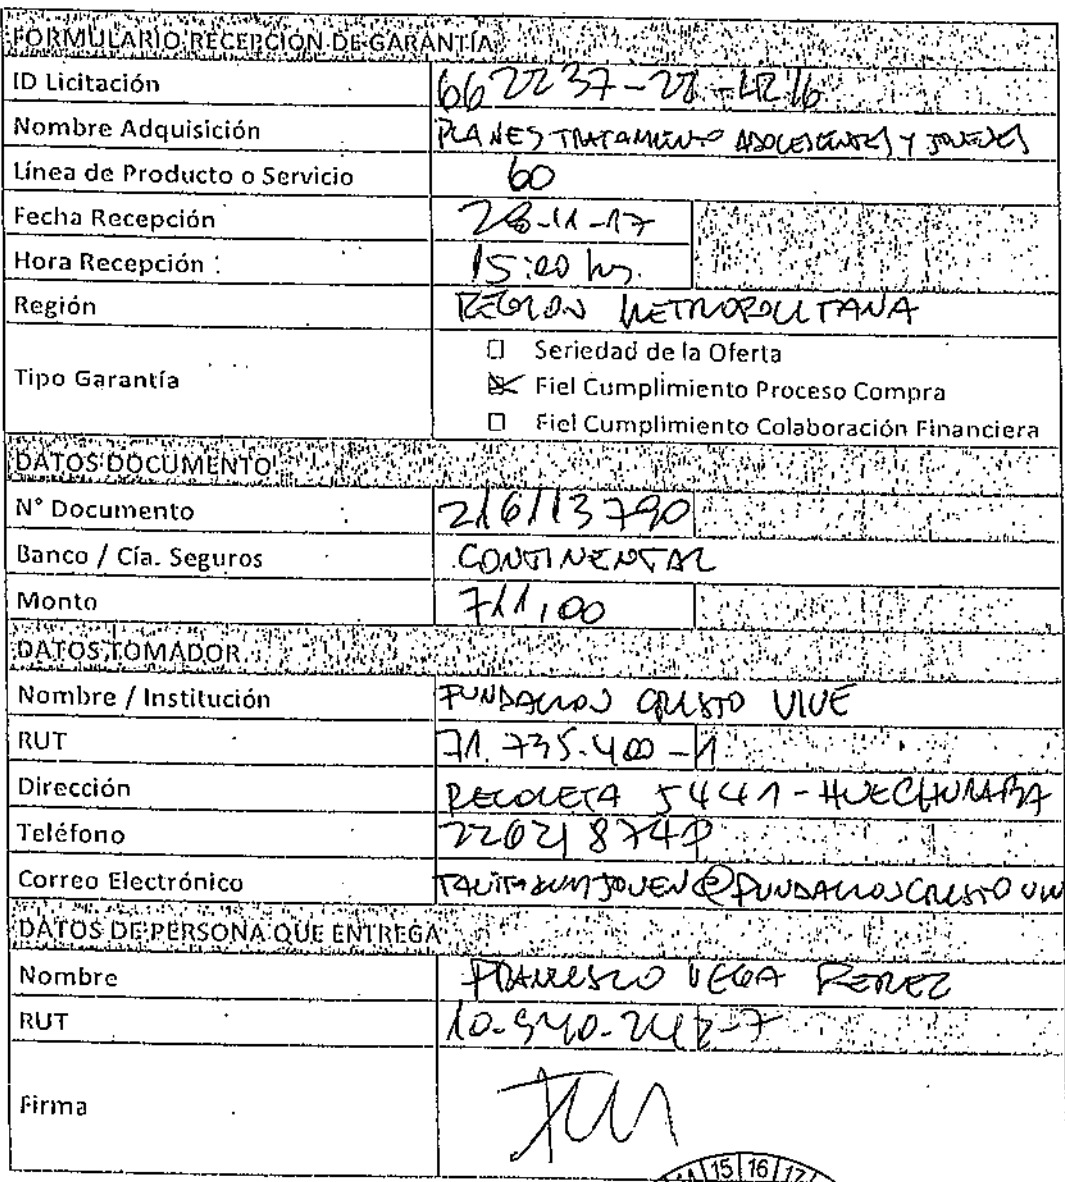 FORMULARIO RECEPCIÓN DE GARANTÍA
ID Licitación 662237-28-LR16
Nombre Adquisición PLANES TRATAMIENTO ADOLESCENTES Y JOVENES
Línea de Producto o Servicio 60
Fecha Recepción 28-11-17
Hora Recepción : 15:00 hrs.
Región REGION METROPOLITANA
Tipo Garantía
Seriedad de la Oferta
Fiel Cumplimiento Proceso Compra
Fiel Cumplimiento Colaboración Financiera
DATOS DOCUMENTO
N° Documento 216113790
Banco / Cía. Seguros CONTINENTAL
Monto 711,00
DATOS TOMADOR
Nombre / Institución FUNDACION CRISTO VIVE
RUT 71.735.400-1
Dirección RECOLETA 5441 - HUECHURABA
Teléfono
Correo Electrónico TALITAKUMJOVEN@FUNDACIONCRISTOVIV
DATOS DE PERSONA QUE ENTREGA
Nombre FRANCISCO VEGA PEREZ
RUT 10.940.242-7
Firma
15 16 17